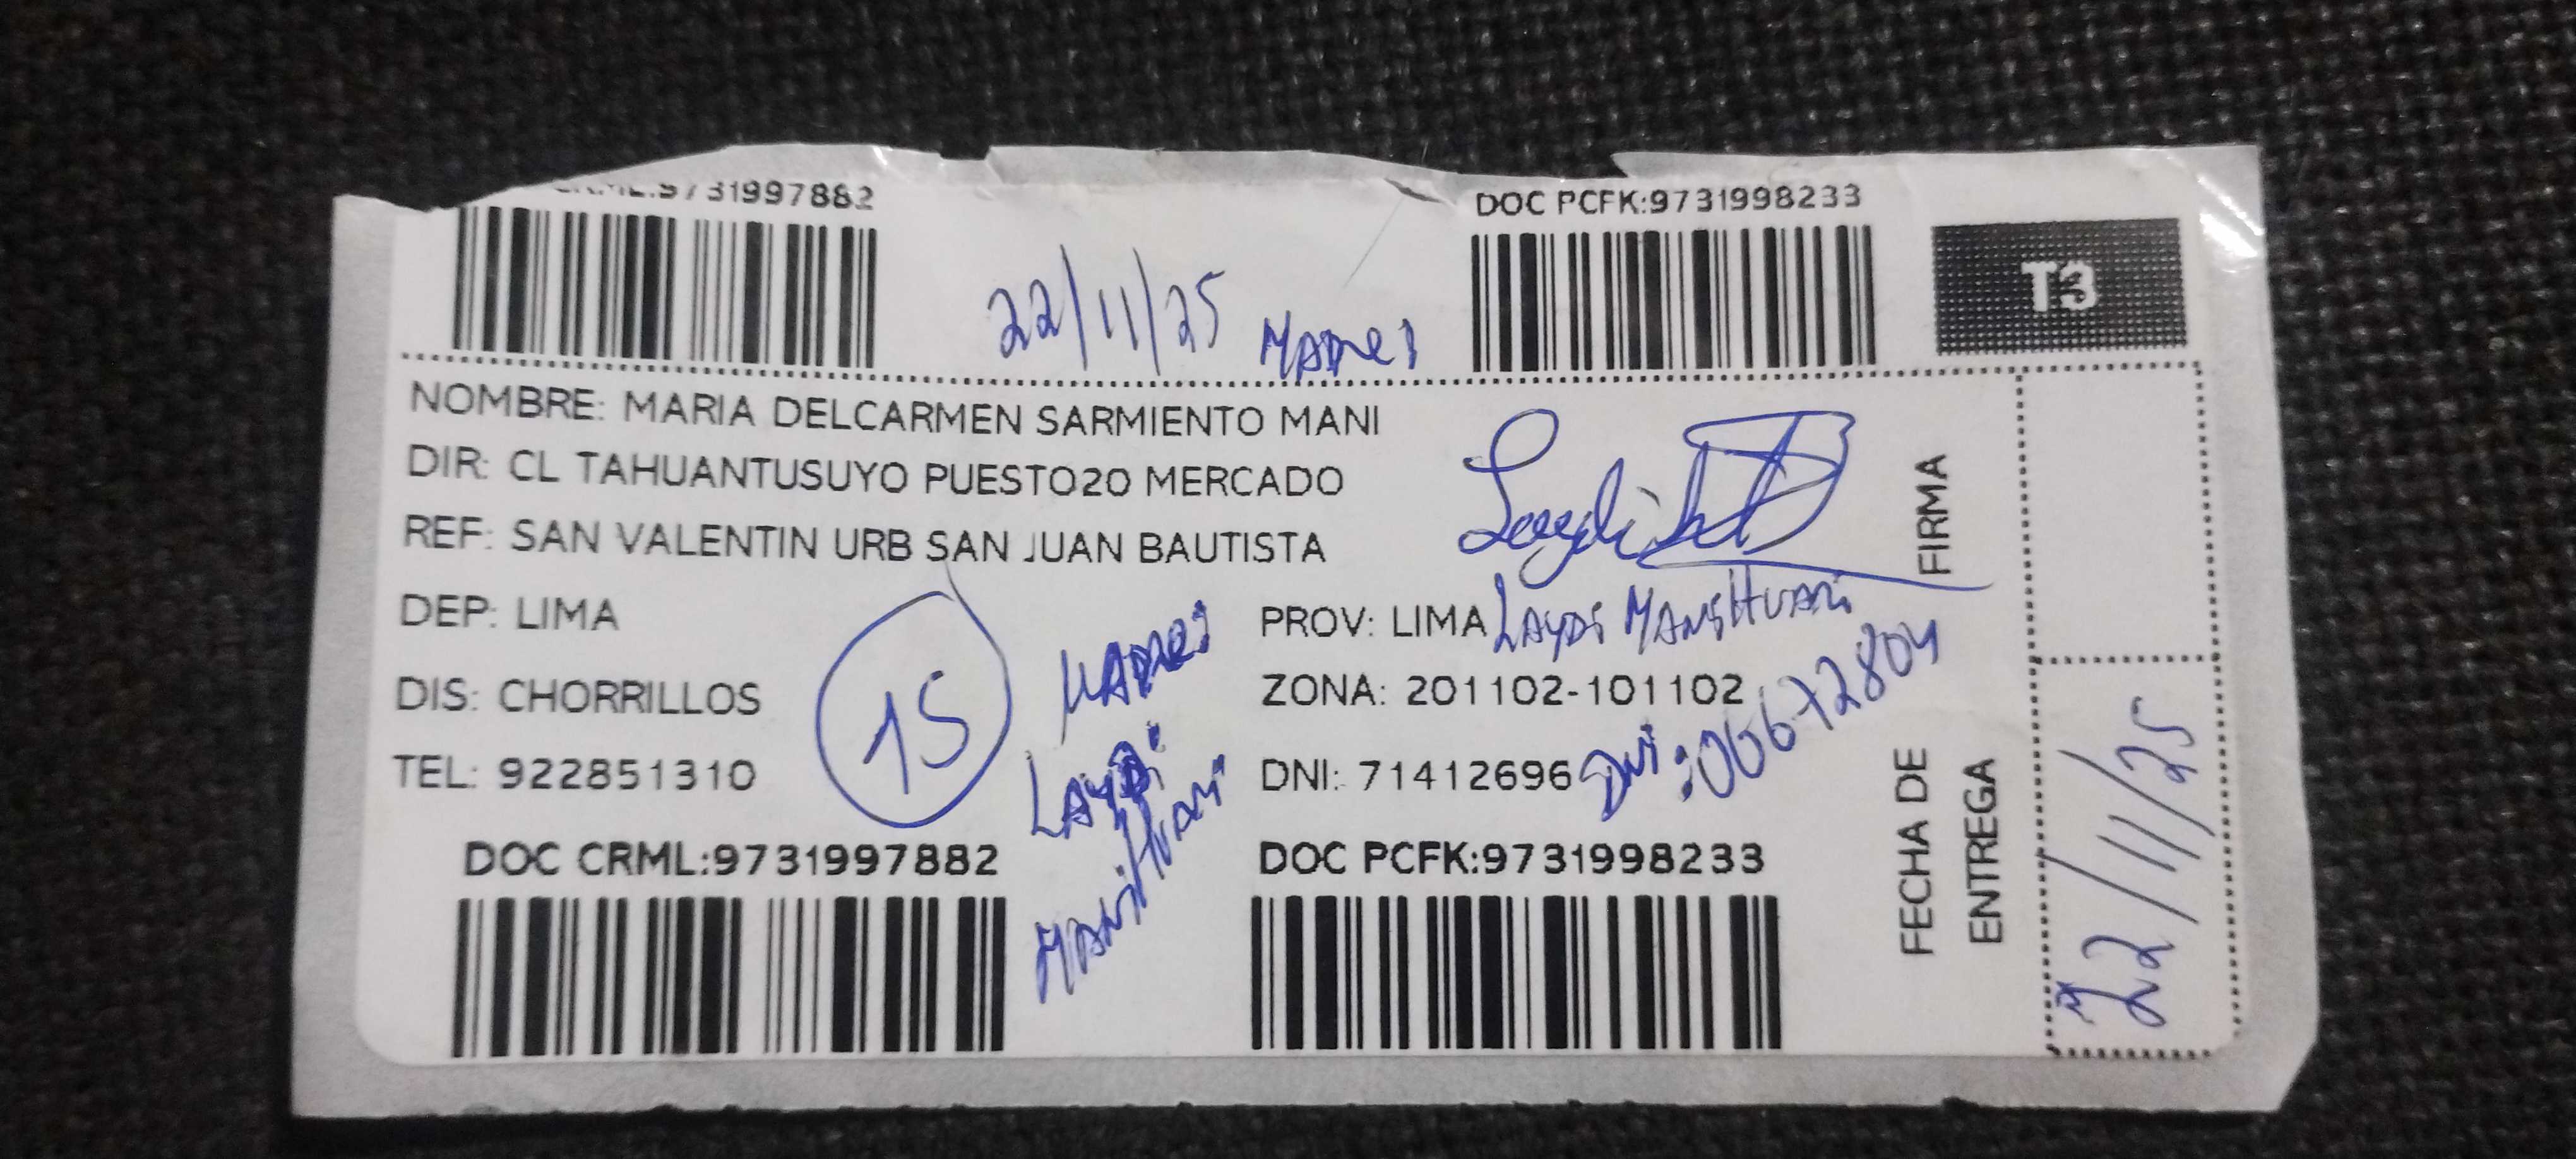 9731997882
DOC PCFK:9731998233
T3
22/11/25
NOMBRE: MARIA DELCARMEN SARMIENTO MANI
DIR: CL TAHUANTUSUYO PUESTO20 MERCADO
REF: SAN VALENTIN URB SAN JUAN BAUTISTA
FIRMA
DEP: LIMA
PROV: LIMA
DIS: CHORRILLOS
15
ZONA: 201102-101102
TEL: 922851310
DNI: 71412696
DNI:
DOC CRML:9731997882
DOC PCFK:9731998233
FECHA DE
ENTREGA
22/11/25